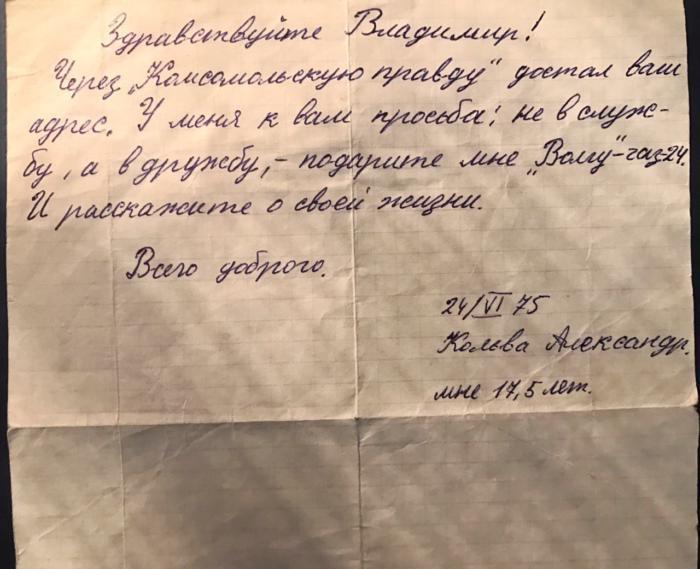 Здравствуйте Владимир!
Через „Комсомольскую правду" достал ваш
адрес. У меня к вам просьба: не в служ-
бу, а в дружбу, - подарите мне „Волгу"-газ-24.
И расскажите о своей жизни.
Всего доброго.
24/VI 75
Кольва Александр.
мне 17,5 лет.